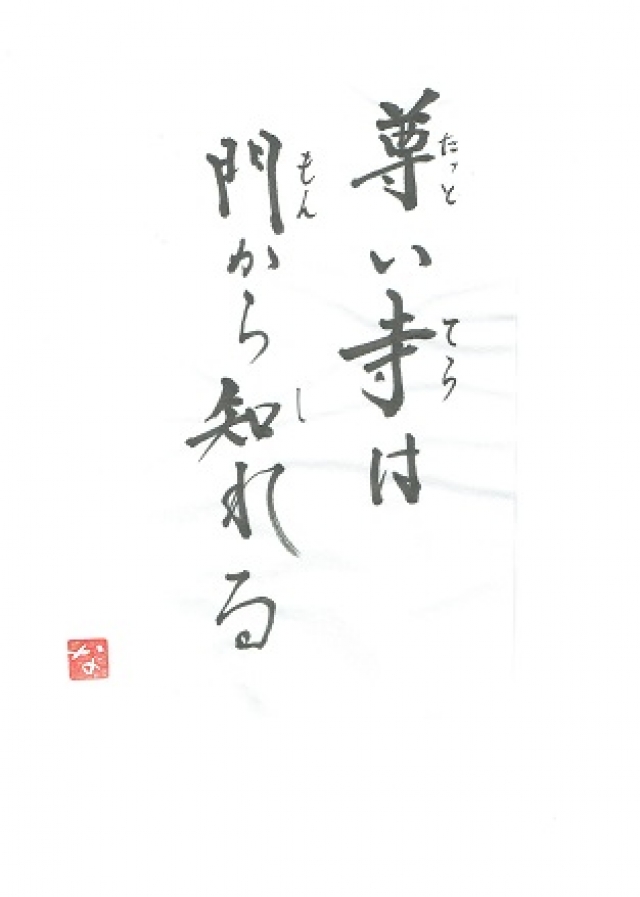 尊い寺は
たっと
てら
門から知れる
もん
し